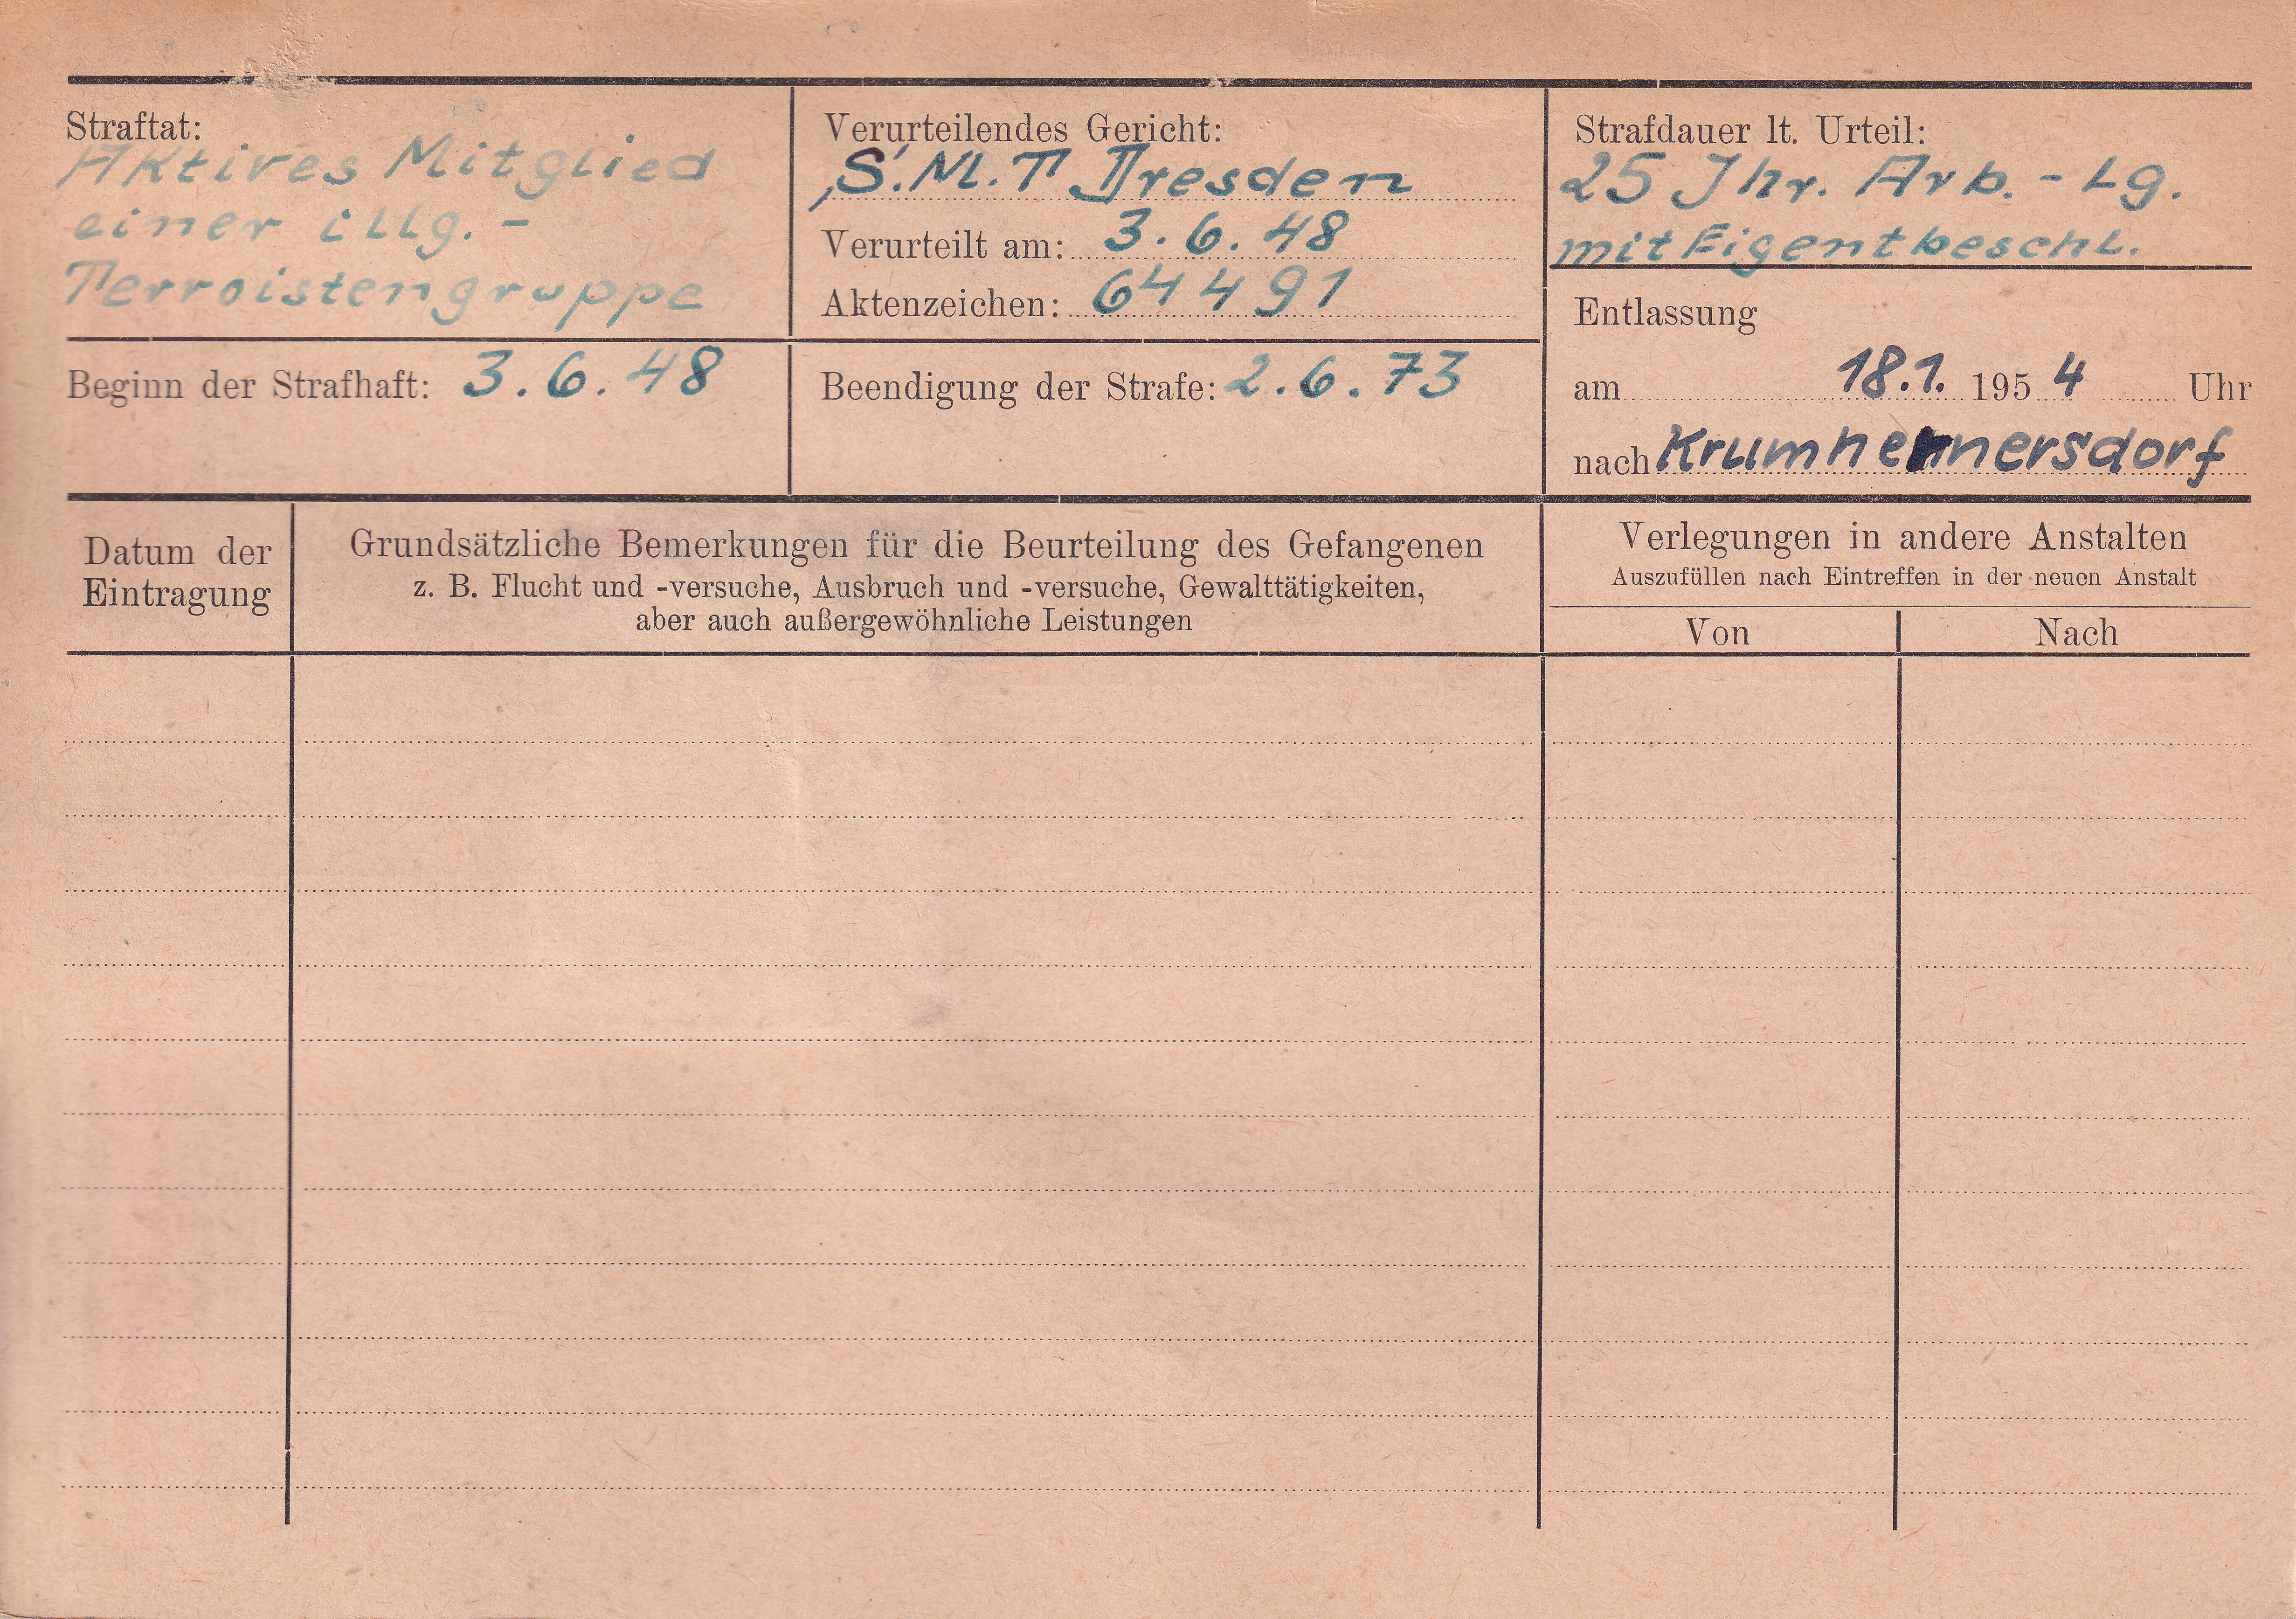 Straftat:
Aktives Mitglied
einer illg. -
Terroistengruppe
Verurteilendes Gericht:
S.M.T Dresden
Verurteilt am: 3.6.48
Aktenzeichen: 64491
Strafdauer lt. Urteil:
25 Jhr. Arb.-Lg.
mit Eigentbeschl.
Beginn der Strafhaft: 3.6.48
Beendigung der Strafe: 2.6.73
Entlassung
am 18.1. 1954 Uhr
nach Krumhennersdorf
Datum der
Eintragung
Grundsätzliche Bemerkungen für die Beurteilung des Gefangenen
z. B. Flucht und -versuche, Ausbruch und -versuche, Gewalttätigkeiten,
aber auch außergewöhnliche Leistungen
Verlegungen in andere Anstalten
Auszufüllen nach Eintreffen in der neuen Anstalt
Von Nach